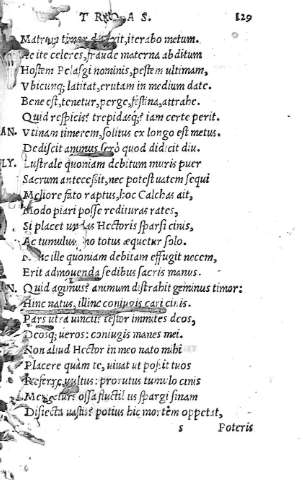 TROAS. 129
Matrem timor detexit, iterabo metum.
Ae ite celeres, fraude materna abditum
Hostem Pelasgi nominis, pestem ultimam,
Vbicunq; latitat, erutam in medium date.
Bene est, tenetur, perge, festina, attrahe.
Quid respicis? trepidasq;? iam certe perit.
AN. Vtinam timerem, solitus ex longo est metus.
Dediscit animus sero quod didicit diu.
LY. Lustrale quoniam debitum muris puer
Sacrum antecessit, nec potest uatem sequi
Meliore fato raptus, hoc Calchas ait,
Modo piari posse redituras rates,
Si placet undas Hectoris sparsi cinis,
Ac tumulus totus æquetur solo.
ille quoniam debitam effugit necem,
Erit admouenda sedibus sacris manus.
N. Quid agimus? animum distrahit geminus timor:
Hinc natus, illinc coniugis cari cinis.
Pars utra uincit? testor immites deos,
Deosq; ueros: coniugis manes mei.
Non aliud Hector in meo nato mihi
Placere quàm te, uiuat ut possit tuos
Referre uultus: prorutus tumulo cinis
Mergetur? ossa fluctu us spargi sinam
Disiecta uastis? potius hic mortem oppetat,
s Poteris